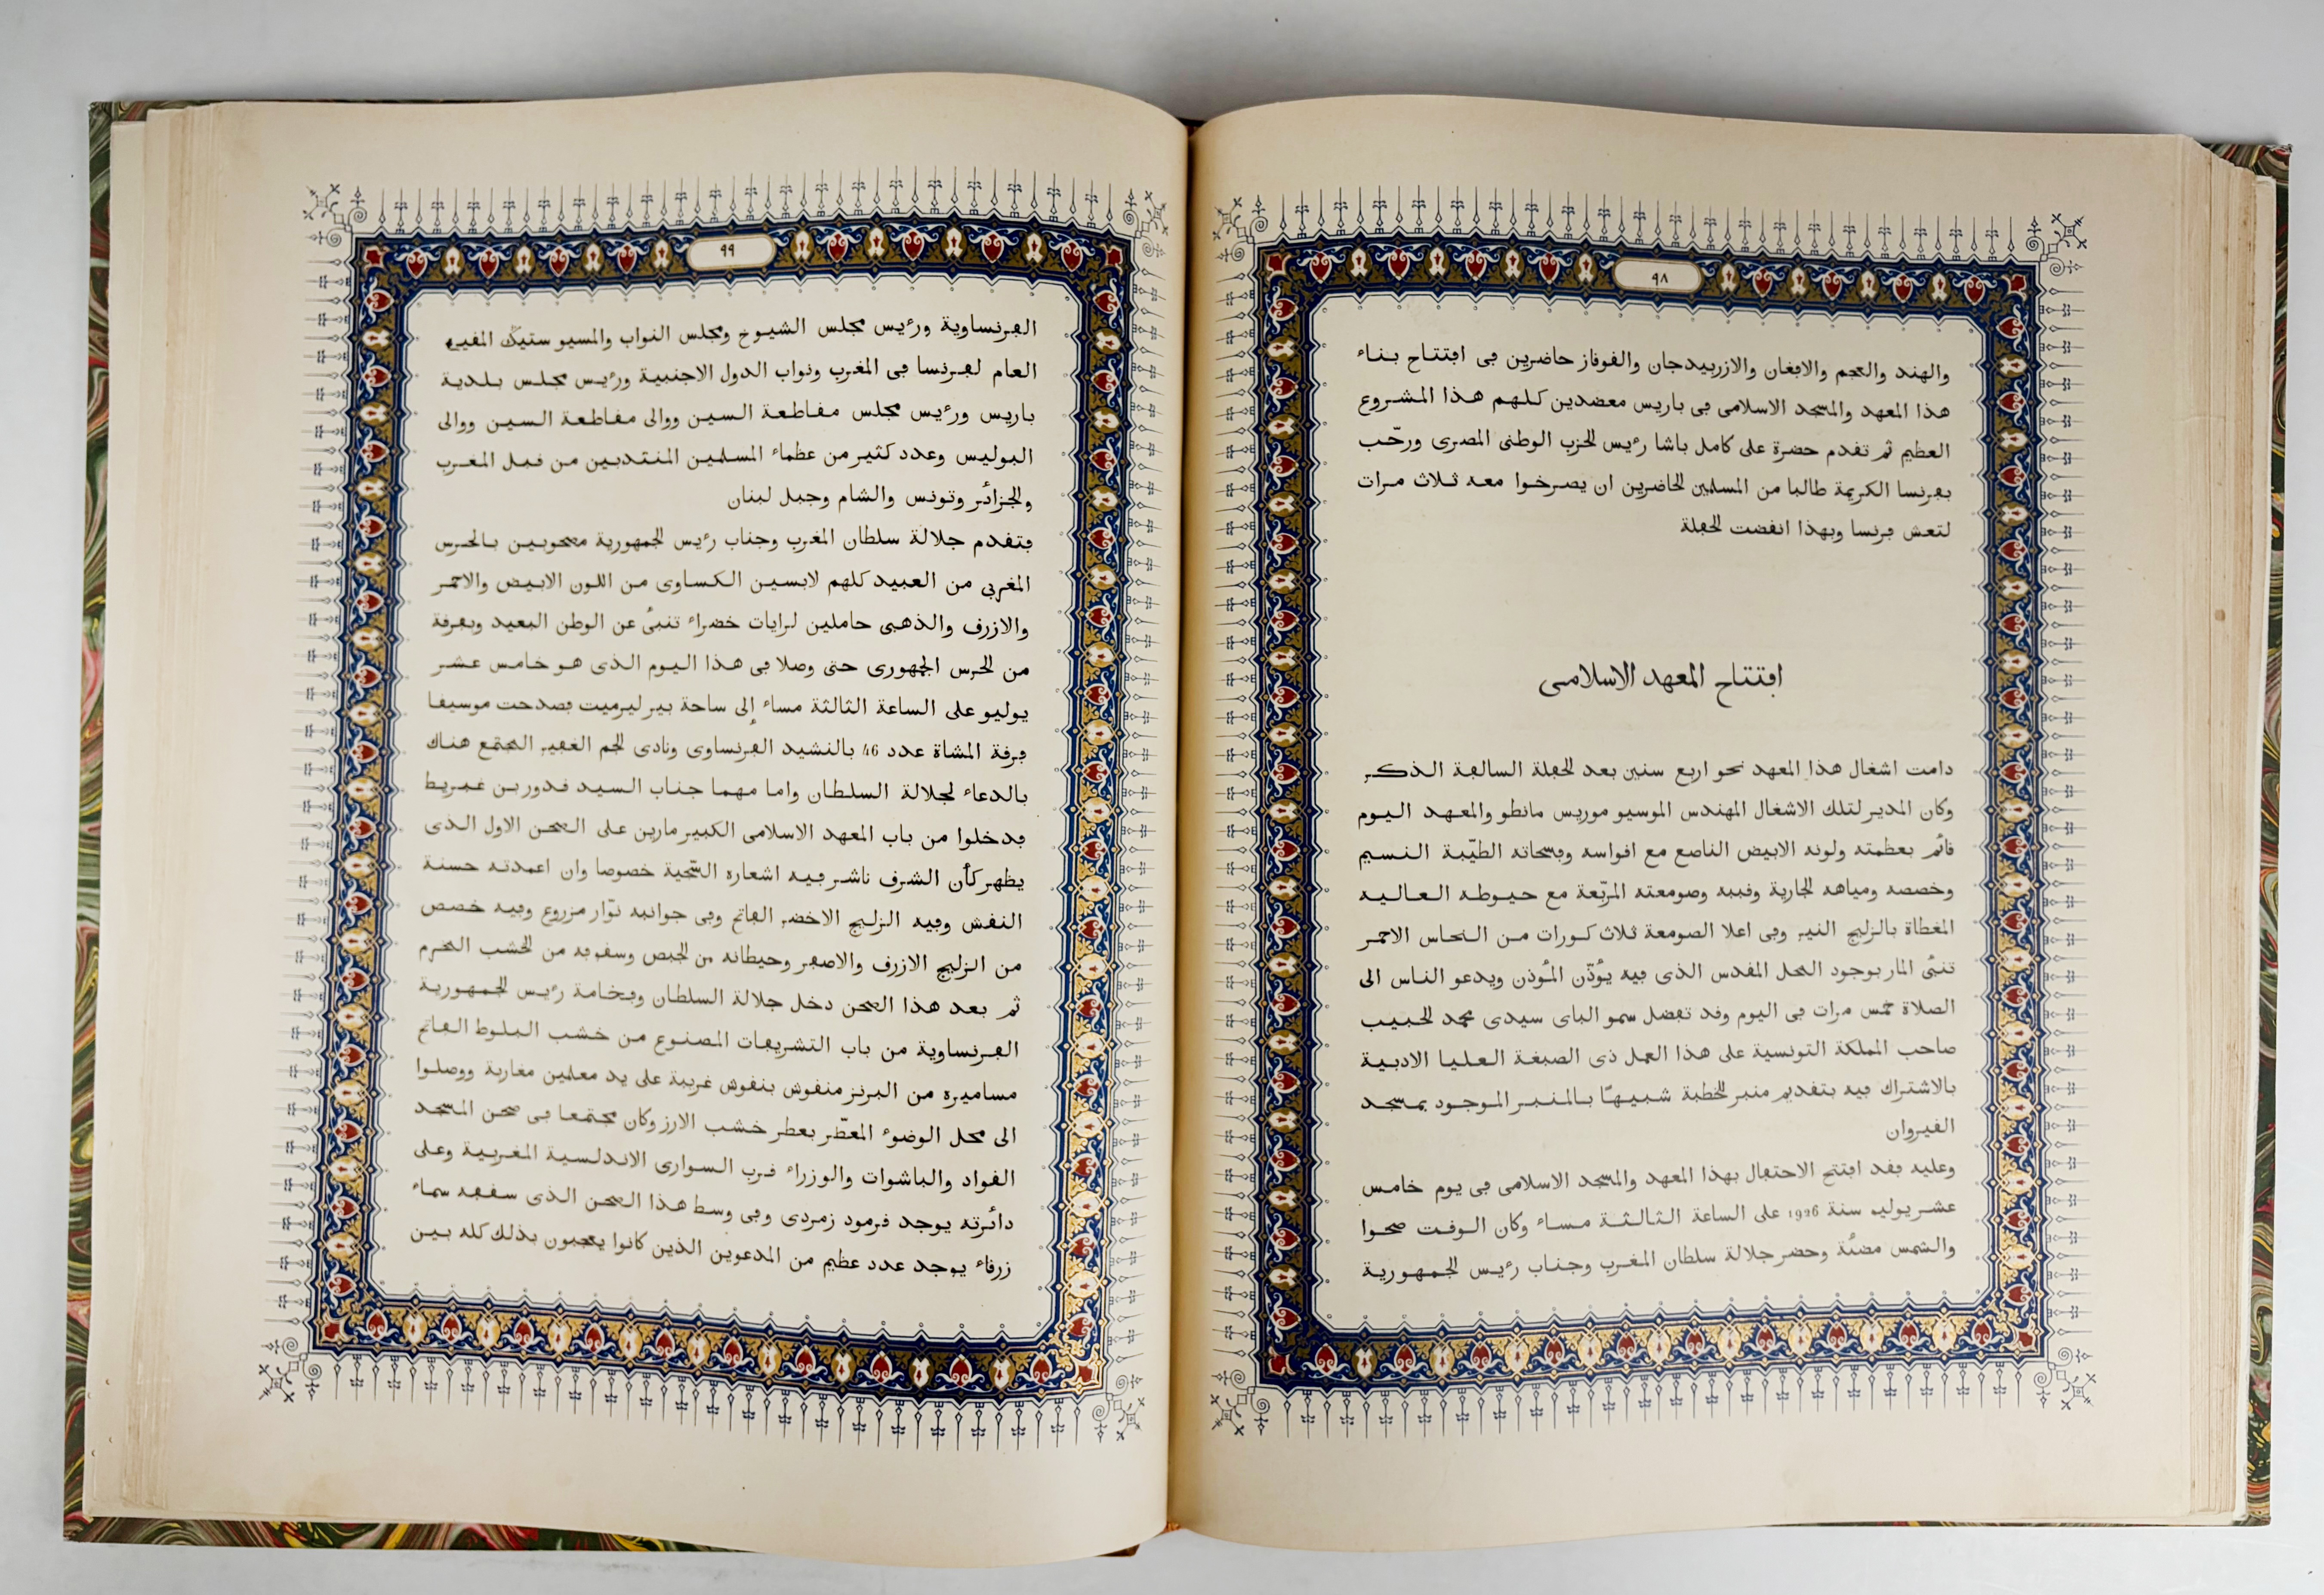 ٩٨
والهند والعجم والافغان والازربيدجان والقوقاز حاضرين فى افتتاح بناء
هذا المعهد والمسجد الاسلامى فى باريس معضدين كلهم هذا المشروع
العظيم ثم تقدم حضرة على كامل باشا رءيس الحزب الوطنى المصرى ورحّب
بفرنسا الكريمة طالبا من المسلمين الحاضرين ان يصرخوا معه ثلاث مرات
لتعش فرنسا وبهذا انفضت الحفلة
افتتاح المعهد الاسلامى
دامت اشغال هذا المعهد نحو اربع سنين بعد الحفلة السالفة الذكر
وكان المدير لتلك الاشغال المهندس الموسيو موريس مانطو والمعهد اليوم
قائم بعظمته ولونه الابيض الناصع مع اقواسه وفسحاته الطيّبة النسيم
وخصصه ومياهه الجارية وقببه وصومعته المربّعة مع حيوطه العاليه
المغطاة بالزليج النير وفى اعلا الصومعة ثلاث كورات من النحاس الاحمر
تنبئ المار بوجود المحل المقدس الذى فيه يؤذّن المؤذن ويدعو الناس الى
الصلاة خمس مرات فى اليوم وقد تفضل سمو الباى سيدى محمد الحبيب
صاحب المملكة التونسية على هذا العمل ذى الصبغة العليا الادبية
بالاشتراك فيه بتقديم منبر للخطبة شبيهًا بالمنبر الموجود بمسجد
القيروان
وعليه فقد افتتح الاحتفال بهذا المعهد والمسجد الاسلامى فى يوم خامس
عشر يوليه سنة 1926 على الساعة الثالثة مساء وكان الوقت صحوا
والشمس مضئة وحضر جلالة سلطان المغرب وجناب رءيس الجمهورية
٩٩
الفرنساوية ورءيس مجلس الشيوخ ومجلس النواب والمسيو ستيك المقيم
العام لفرنسا فى المغرب ونواب الدول الاجنبية ورءيس مجلس بلدية
باريس ورءيس مجلس مقاطعة السين ووالى مقاطعة السين ووالى
البوليس وعدد كثير من عظماء المسلمين المنتدبين من قبل المغرب
والجزائر وتونس والشام وجبل لبنان
فتقدم جلالة سلطان المغرب وجناب رءيس الجمهورية مصحوبين بالحرس
المغربى من العبيد كلهم لابسين الكساوى من اللون الابيض والاحمر
والازرق والذهبى حاملين لرايات خضراء تنبئ عن الوطن البعيد وبفرقة
من الحرس الجمهورى حتى وصلا فى هذا اليوم الذى هو خامس عشر
يوليو على الساعة الثالثة مساء إلى ساحة بير ليرميت فصدحت موسيقا
فرقة المشاة عدد 46 بالنشيد الفرنساوى ونادى الجم الغفير المجتمع هناك
بالدعاء لجلالة السلطان واما مهما جناب السيد قدور بن غبريط
فدخلوا من باب المعهد الاسلامى الكبير مارين على الصحن الاول الذى
يظهر كأن الشرق ناشر فيه اشعاره السّحية خصوصا وان اعمدته حسنة
النقش وفيه الزليج الاخضر الفاتح وفى جوانبه نوّار مزروع وفيه خصص
من الزليج الازرق والاصفر وحيطانه من الجبص وسقوفه من الخشب المخرم
ثم بعد هذا الصحن دخل جلالة السلطان وفخامة رءيس الجمهورية
الفرنساوية من باب التشريفات المصنوع من خشب البلوط الفاتح
مساميره من البرنز منقوش بنقوش غريبة على يد معلمين مغاربة ووصلوا
الى محل الوضوء المعطّر بعطر خشب الارز وكان مجتمعا فى صحن المسجد
القواد والباشوات والوزراء قرب السوارى الاندلسية المغربية وعلى
دائرته يوجد قرمود زمردى وفى وسط هذا الصحن الذى سقفه سماء
زرقاء يوجد عدد عظيم من المدعوين الذين كانوا يعجبون بذلك كله بين